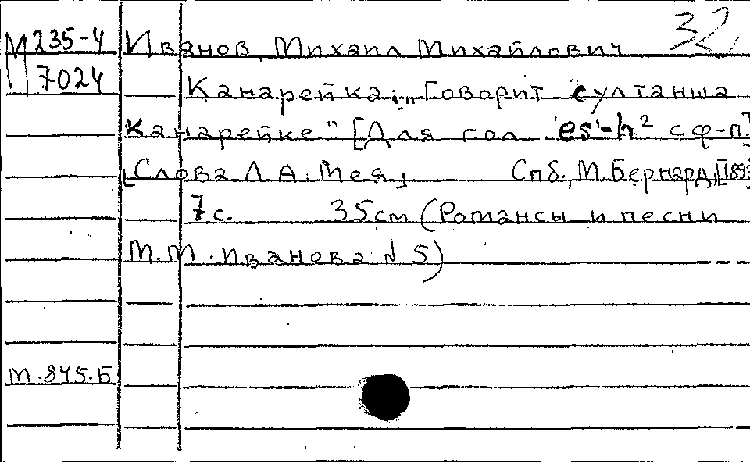 32
М 235-4 Иванов, Михаил Михайлович
7024 Канарейка: "Говорит султанша
канарейке" [Для гол. es¹-h² с ф-п]
[Слова Л. А. Мея] Спб., М. Бернард,
7 с. 35 см (Романсы и песни
М. М. Иванова № 5)
М.845.Б